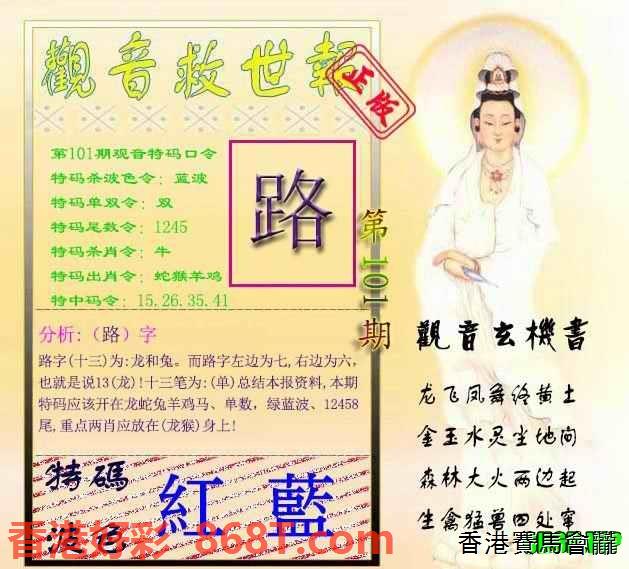 觀音救世報
正版
第101期观音特码口令
特码杀波色令：蓝波
特码单双令：双
特码尾数令：1245
特码杀肖令：牛
特码出肖令：蛇猴羊鸡
特中码令：15.26.35.41
路
第101期
分析:（路）字
路字(十三)为:龙和兔。而路字左边为七,右边为六,
也就是说13(龙)!十三笔为:(单)总结本报资料,本期
特码应该开在龙蛇兔羊鸡马、单数，绿蓝波、12458
尾,重点两肖应放在(龙猴)身上!
觀音玄機書
龙飞凤舞终黄土
金玉水灵尘地间
森林大火两边起
生禽猛兽四处窜
特碼
波色
紅 藍
香港好彩 868T.com
香港賽馬會